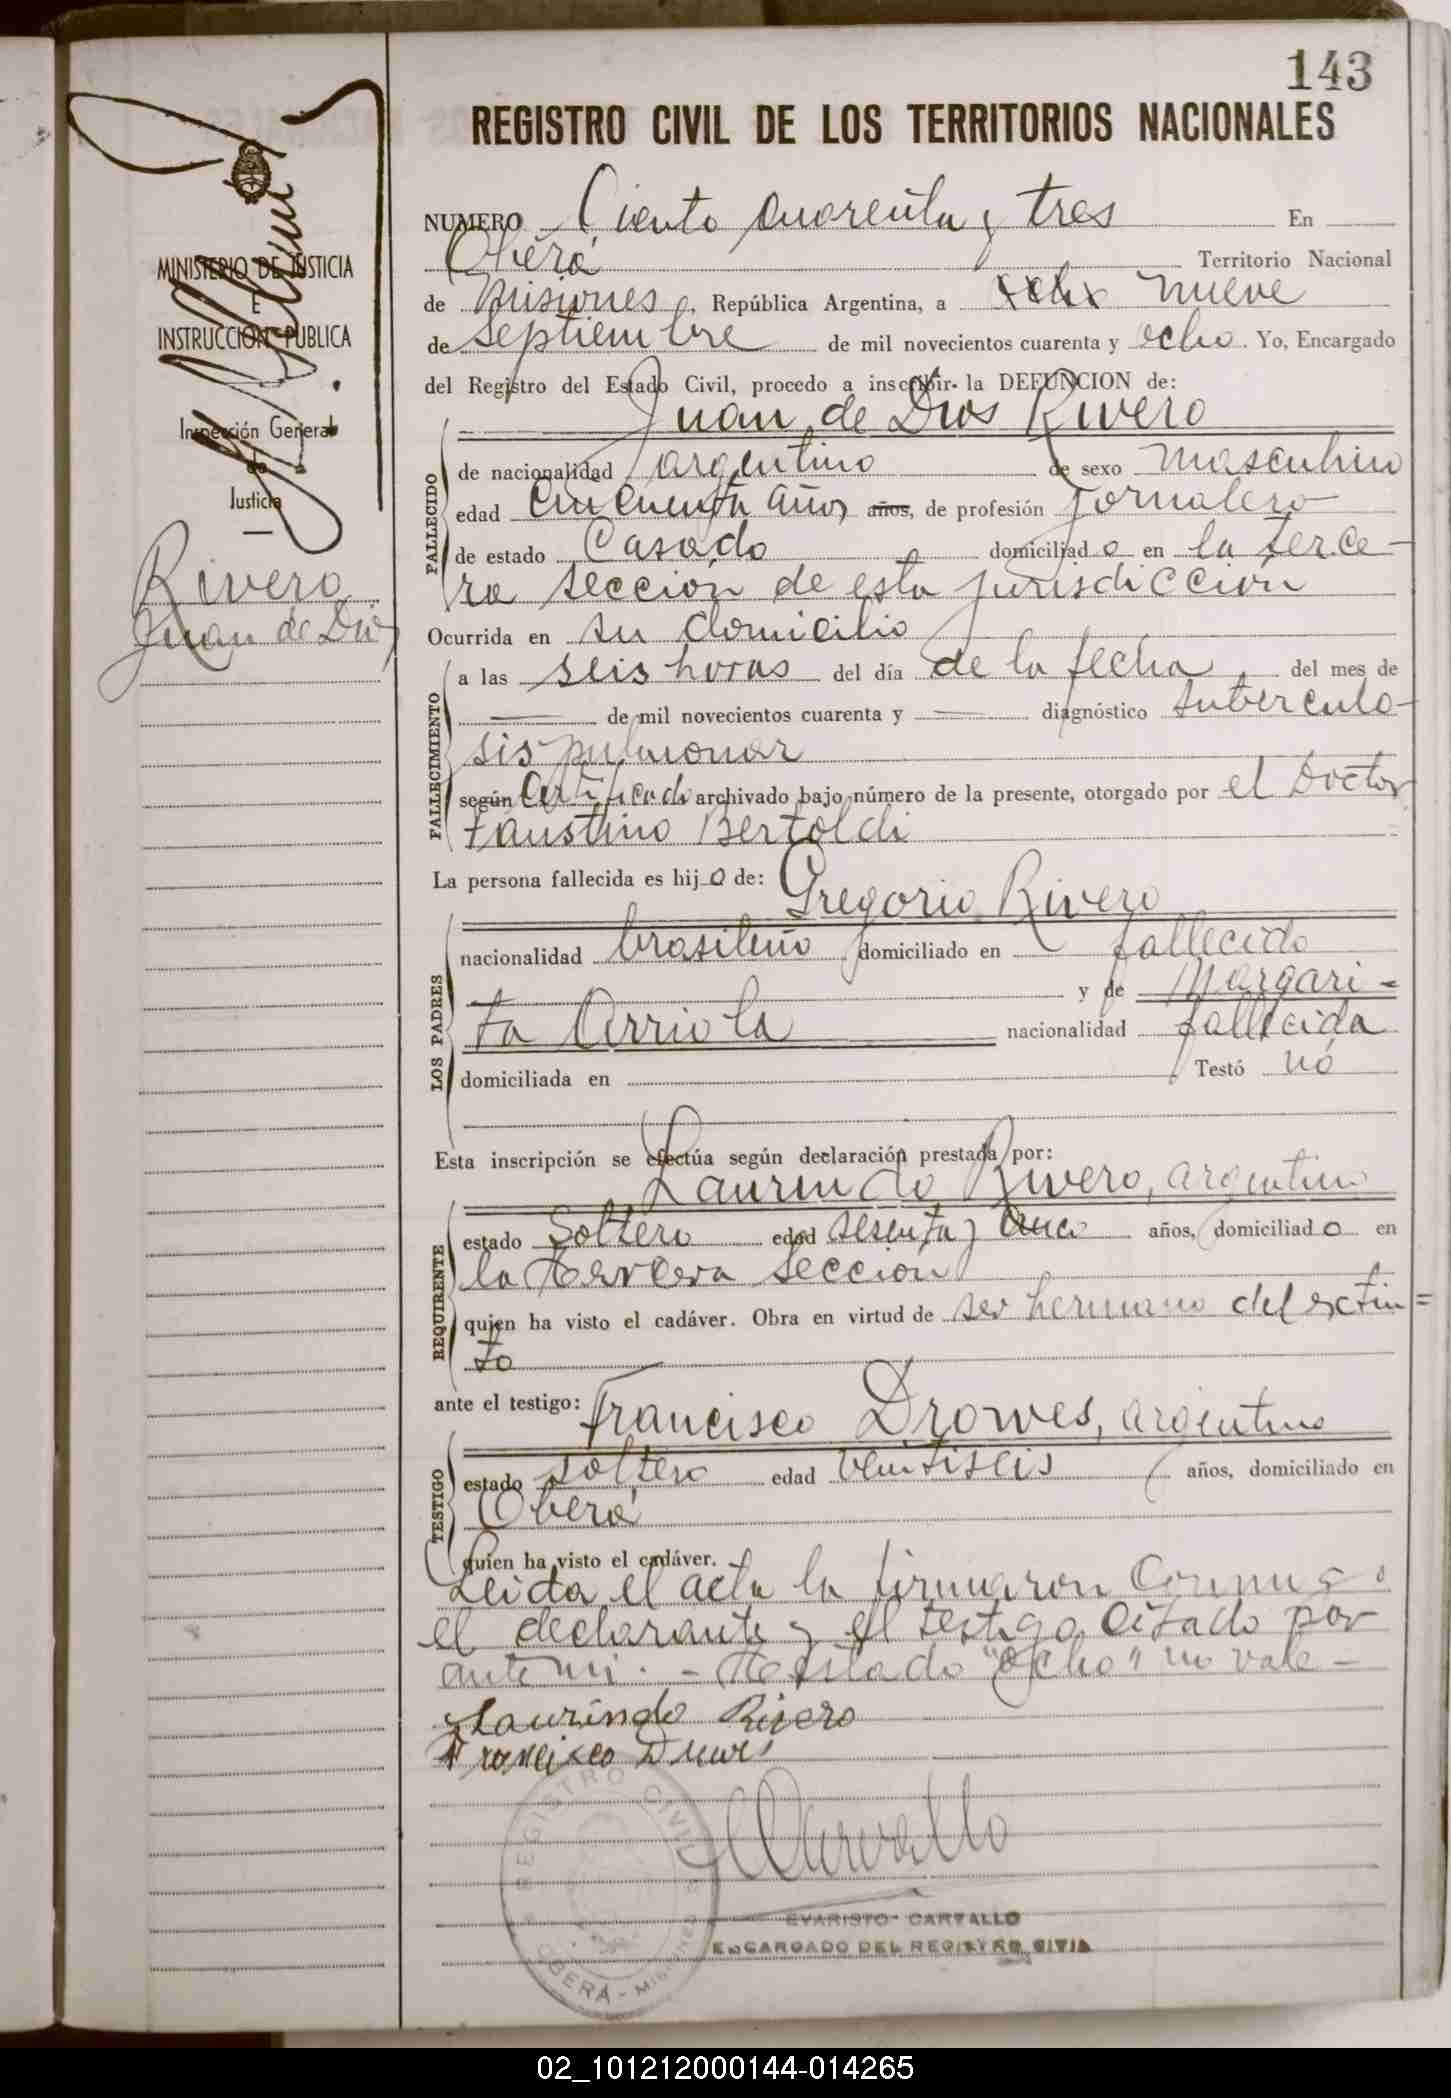 143
REGISTRO CIVIL DE LOS TERRITORIOS NACIONALES
MINISTERIO DE JUSTICIA
E
INSTRUCCION PUBLICA
Inspección General
de
Justicia
Rivero
Juan de Dios
NUMERO Ciento cuarenta y tres En
Oberá Territorio Nacional
de Misiones, República Argentina, a nueve
de septiembre de mil novecientos cuarenta y ocho. Yo, Encargado
del Registro del Estado Civil, procedo a inscribir la DEFUNCION de:
Juan de Dios Rivero
FALLECIDO
de nacionalidad argentino de sexo masculino
edad cincuenta años años, de profesión jornalero
de estado Casado domiciliado en la terce-
ra sección de esta jurisdicción
Ocurrida en su domicilio
FALLECIMIENTO
a las seis horas del día de la fecha del mes de
— de mil novecientos cuarenta y — diagnóstico tuberculo-
sis pulmonar
según Certificado archivado bajo número de la presente, otorgado por el Doctor
Faustino Bertoldi
La persona fallecida es hijo de: Gregorio Rivero
LOS PADRES
nacionalidad brasileño domiciliado en fallecido
y de Margari-
ta Arriola nacionalidad fallecida
domiciliada en Testó nó
Esta inscripción se efectúa según declaración prestada por:
Laurindo Rivero, argentino
REQUIRENTE
estado Soltero edad sesenta y cinco años, domiciliado en
la tercera Seccion
quien ha visto el cadáver. Obra en virtud de ser hermano del extin=
to
ante el testigo: Francisco Drowes, argentino
TESTIGO
estado soltero edad veintiseis años, domiciliado en
Oberá
quien ha visto el cadáver.
Leida el acta la firmaron conmigo
el declarante y el testigo citado por
ante mi. - Testado "ocho" no vale -
Laurindo Rivero
Francisco
REGISTRO CIVIL
OBERÁ - MISIONES
EVARISTO CARVALLO
ENCARGADO DEL REGISTRO CIVIL
02_101212000144-014265